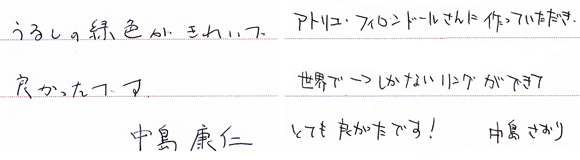 うるしの緑色がきれいで
良かったです
中島 康仁
アトリエ・フィロンドールさんに作っていただき
世界で一つしかないリングができて
とても良かたです!
中島 さおり